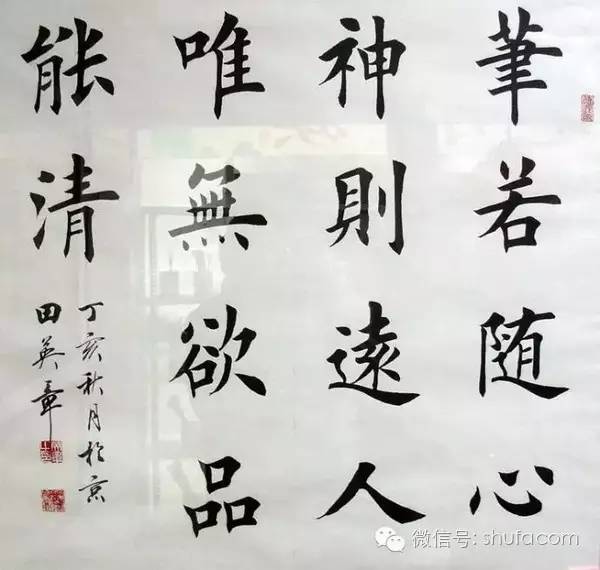 筆若随心
神則遠人
唯無欲品
能清
丁亥秋月於京
田英章
微信号: shufacom